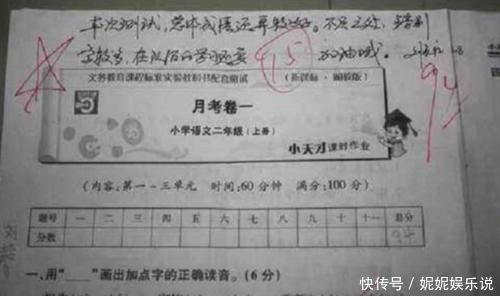 本次测试,总体成绩还算较好。不足之处,错别
字较多,在以后的学习还要 15 加油哦。
94
义务教育课程标准实验教科书配套测试 (新课标·
月考卷一
小学语文二年级(上册)
小天才课时作业
(内容:第一~三单元 时间:60分钟 满分:100分)
题号 一 二 三 四 五 六 七 八 九 十 十一 总分
分数 94
一、用“____”画出加点字的正确读音。(6分)
快传号 / 妮妮娱乐说